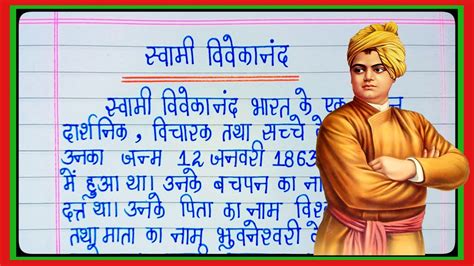 स्वामी विवेकानंद
स्वामी विवेकानंद भारत के एक
दार्शनिक , विचारक तथा सच्चे
उनका जन्म 12 जनवरी 1863
में हुआ था। उनके बचपन का
दत्त था। उनके पिता का नाम
तथा माता का नाम भुवनेश्वरी